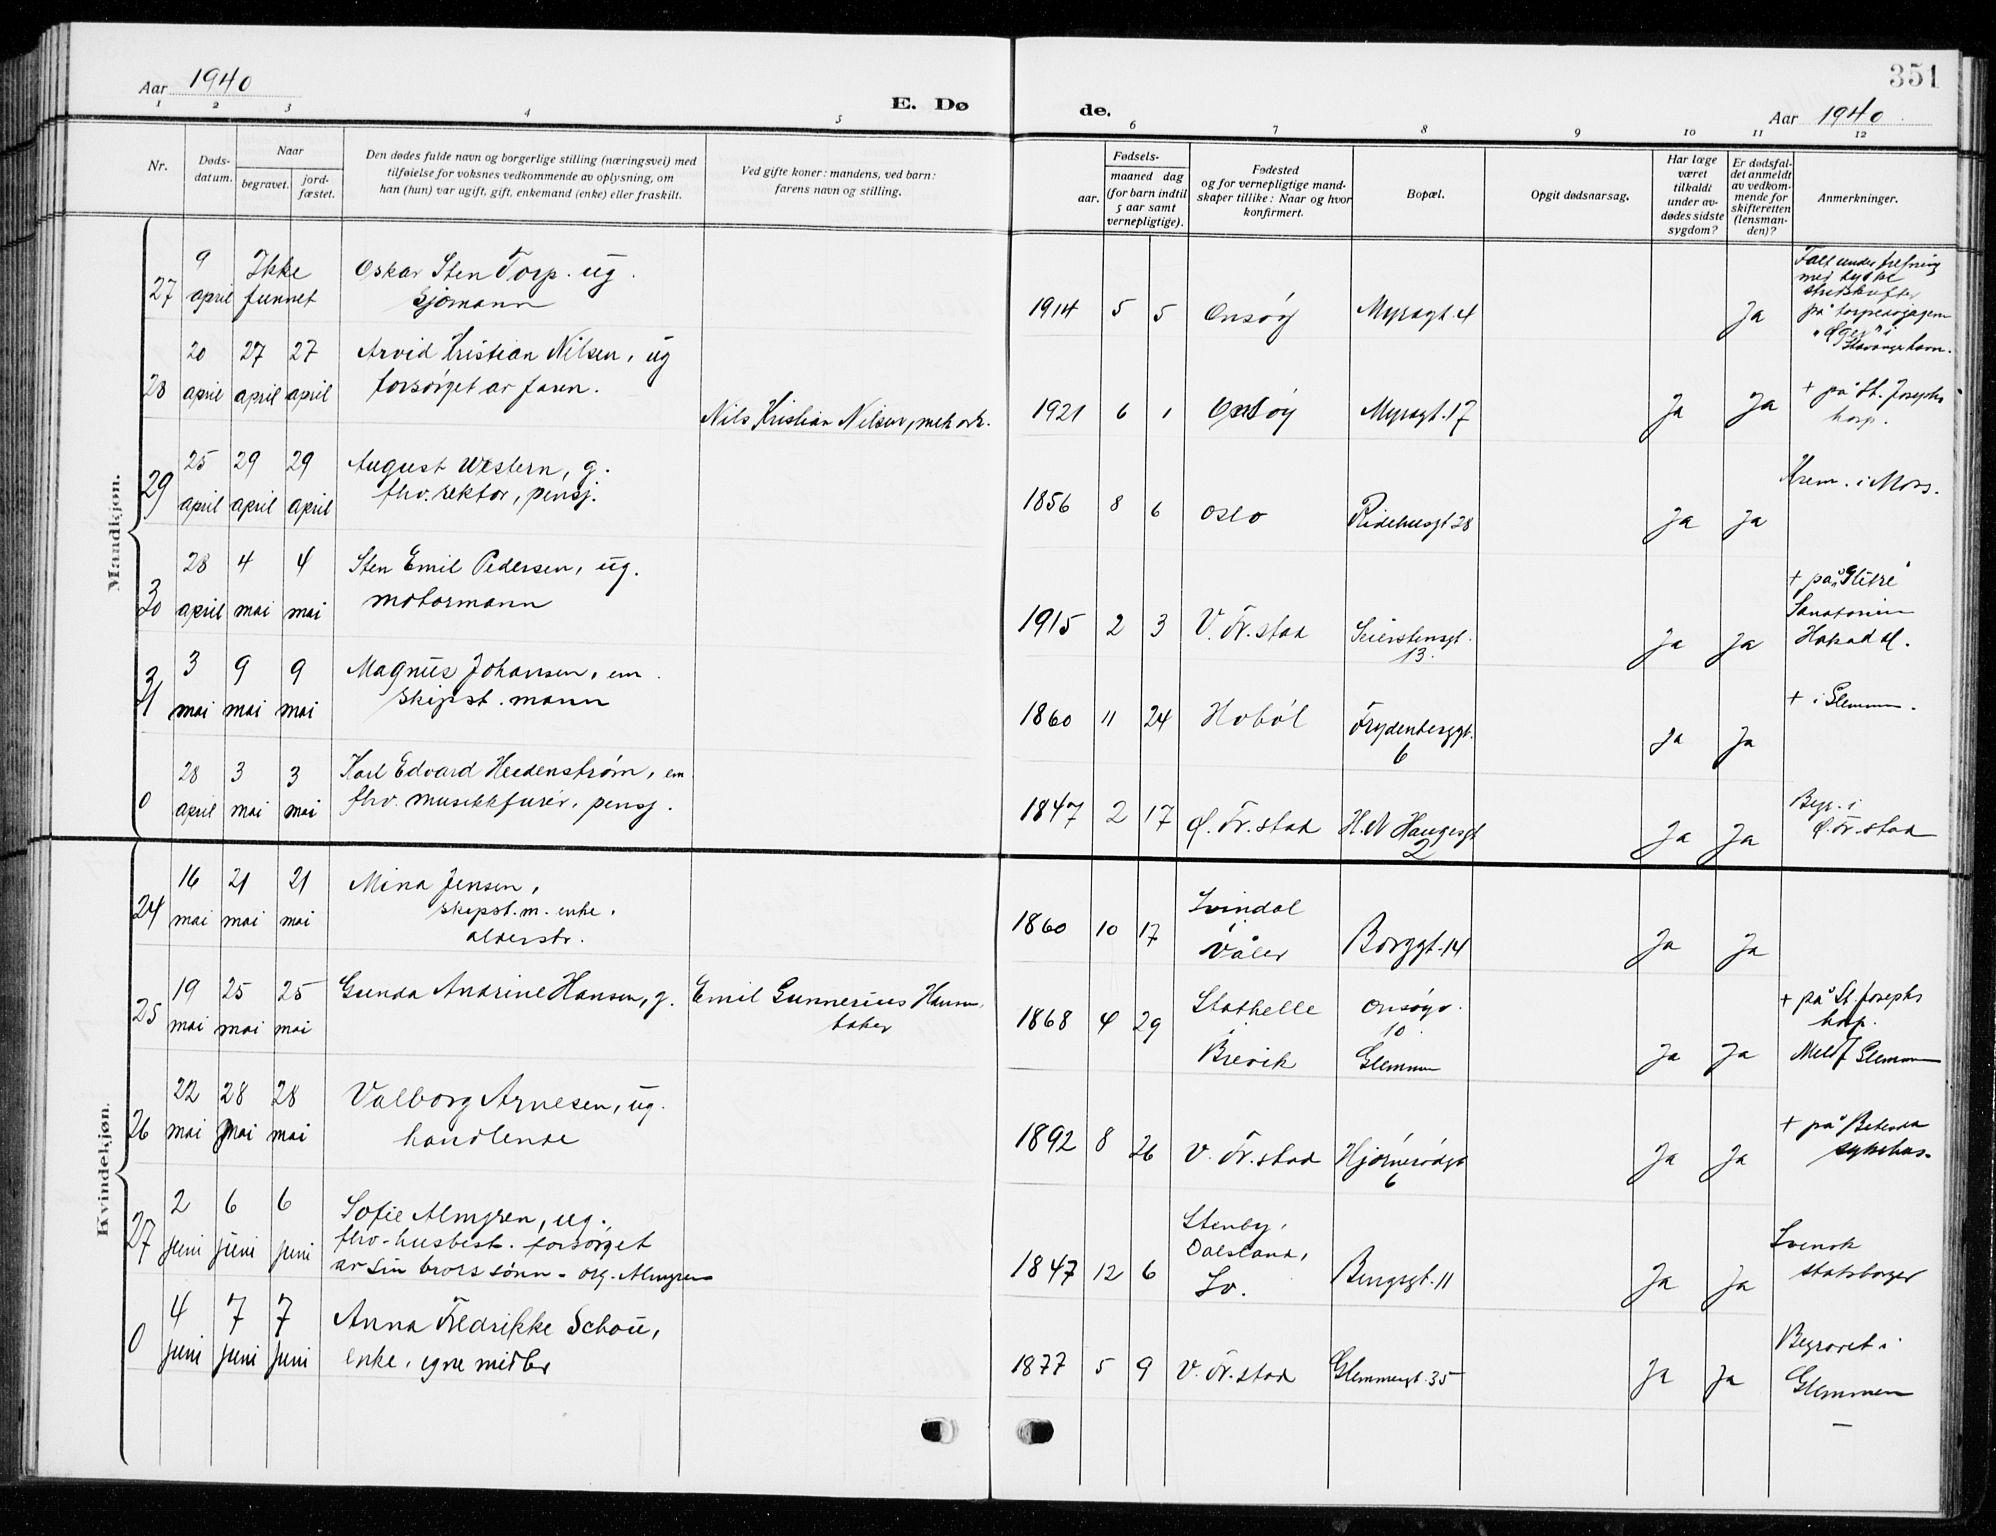 351
Aar 1940
E. Dø
de.
Aar 1940
1 2 3 4 5 6 7 8 9 10 11 12
Nr.
Døds-
datum.
Naar
begravet.
jord-
fæstet.
Den dødes fulde navn og borgerlige stilling (næringsvei) med
tilføielse for voksnes vedkommende av oplysning, om
han (hun) var ugift, gift, enkemand (enke) eller fraskilt.
Ved gifte koner: mandens, ved barn:
farens navn og stilling.
Fødsels-
aar.
maaned dag
(for barn indtil
5 aar samt
vernepligtige).
Fødested
og for vernepligtige mand-
skaper tillike: Naar og hvor
konfirmert.
Bopæl.
Opgit dødsaarsag.
Har læge
været
tilkaldt
under av-
dødes sidste
sygdom?
Er dødsfal-
det anmeldt
av vedkom-
mende for
skifteretten
(lensman-
den)?
Anmerkninger.
Mandkjøn.
27
9 april
Ikke
funnet
Oskar Sten Torp. ug.
Sjømann
1914 5 5 Onsøy Myragt. 4 Ja
Falt under trefning
med tyske
stridskrefter
på torpedojageren
"Æger" i
Stavanger havn.
28
20 april 27 april 27 april
Arvid Kristian Nilsen, ug
forsørget av faren.
Nils Kristian Nilsen, mek arb.
1921 6 1 Onsøy Myragt. 17 Ja Ja
+ på St. Josephs
hosp.
29
25 april 29 april 29 april
August Western, g.
fhv. rektor, pensj.
1856 8 6 Oslo Ridehusgt 28 Ja Ja
Krem. i Moss.
30
28 april 4 mai 4 mai
Sten Emil Pedersen, ug.
motormann
1915 2 3 V. Fr. stad Seierstensgt.
13.
Ja Ja
+ på "Glitre"
Sanatorium
Hakadal.
31
3 mai 9 mai 9 mai
Magnus Johansen, em.
skipst. mann
1860 11 24 Hobøl Frydenberggt.
6
Ja Ja
+ i Glemmen.
0
28 april 3 mai 3 mai
Karl Edvard Heedenstrøm, em
fhv. musikkfurér, pensj.
1847 2 17 Ø. Fr. stad H.N Haugesgt
2
Ja Ja
Begr. i
Ø. Fr. stad
Kvindekjøn.
24
16 mai 21 mai 21 mai
Mina Jensen,
skipst. m. enke,
alderstr.
1860 10 17 Svindal
i
Våler
Borggt. 14 Ja Ja
25
19 mai 25 mai 25 mai
Gunda Andrine Hansen, g. Emil Gunnerius Hansen,
baker
1868 4 29 Stathelle
i
Brevik
Onsøyv.
10
Glemmen
Ja Ja
+ på St. Josephs
hosp.
Meld f Glemmen
26
22 mai 28 mai 28 mai
Valborg Arnesen, ug.
handlende
1892 8 26 V. Fr. stad Hjørnerødgt
6
Ja Ja
+ på Betesda
sykehus.
27
2 juni 6 juni 6 juni
Sofie Almgren, ug.
fhv. husbest. forsørget
av sin brors sønn - org. Almgren
1847 12 6 Stenby,
Dalsland,
Sv.
Bergsgt. 11 Ja Ja
Svensk
statsborger
0
4 juni 7 juni 7 juni
Anna Fredrikke Schou,
enke, egne midler
1877 5 9 V. Fr. stad Glemmengt. 35 Ja Ja
Begravet i
Glemmen